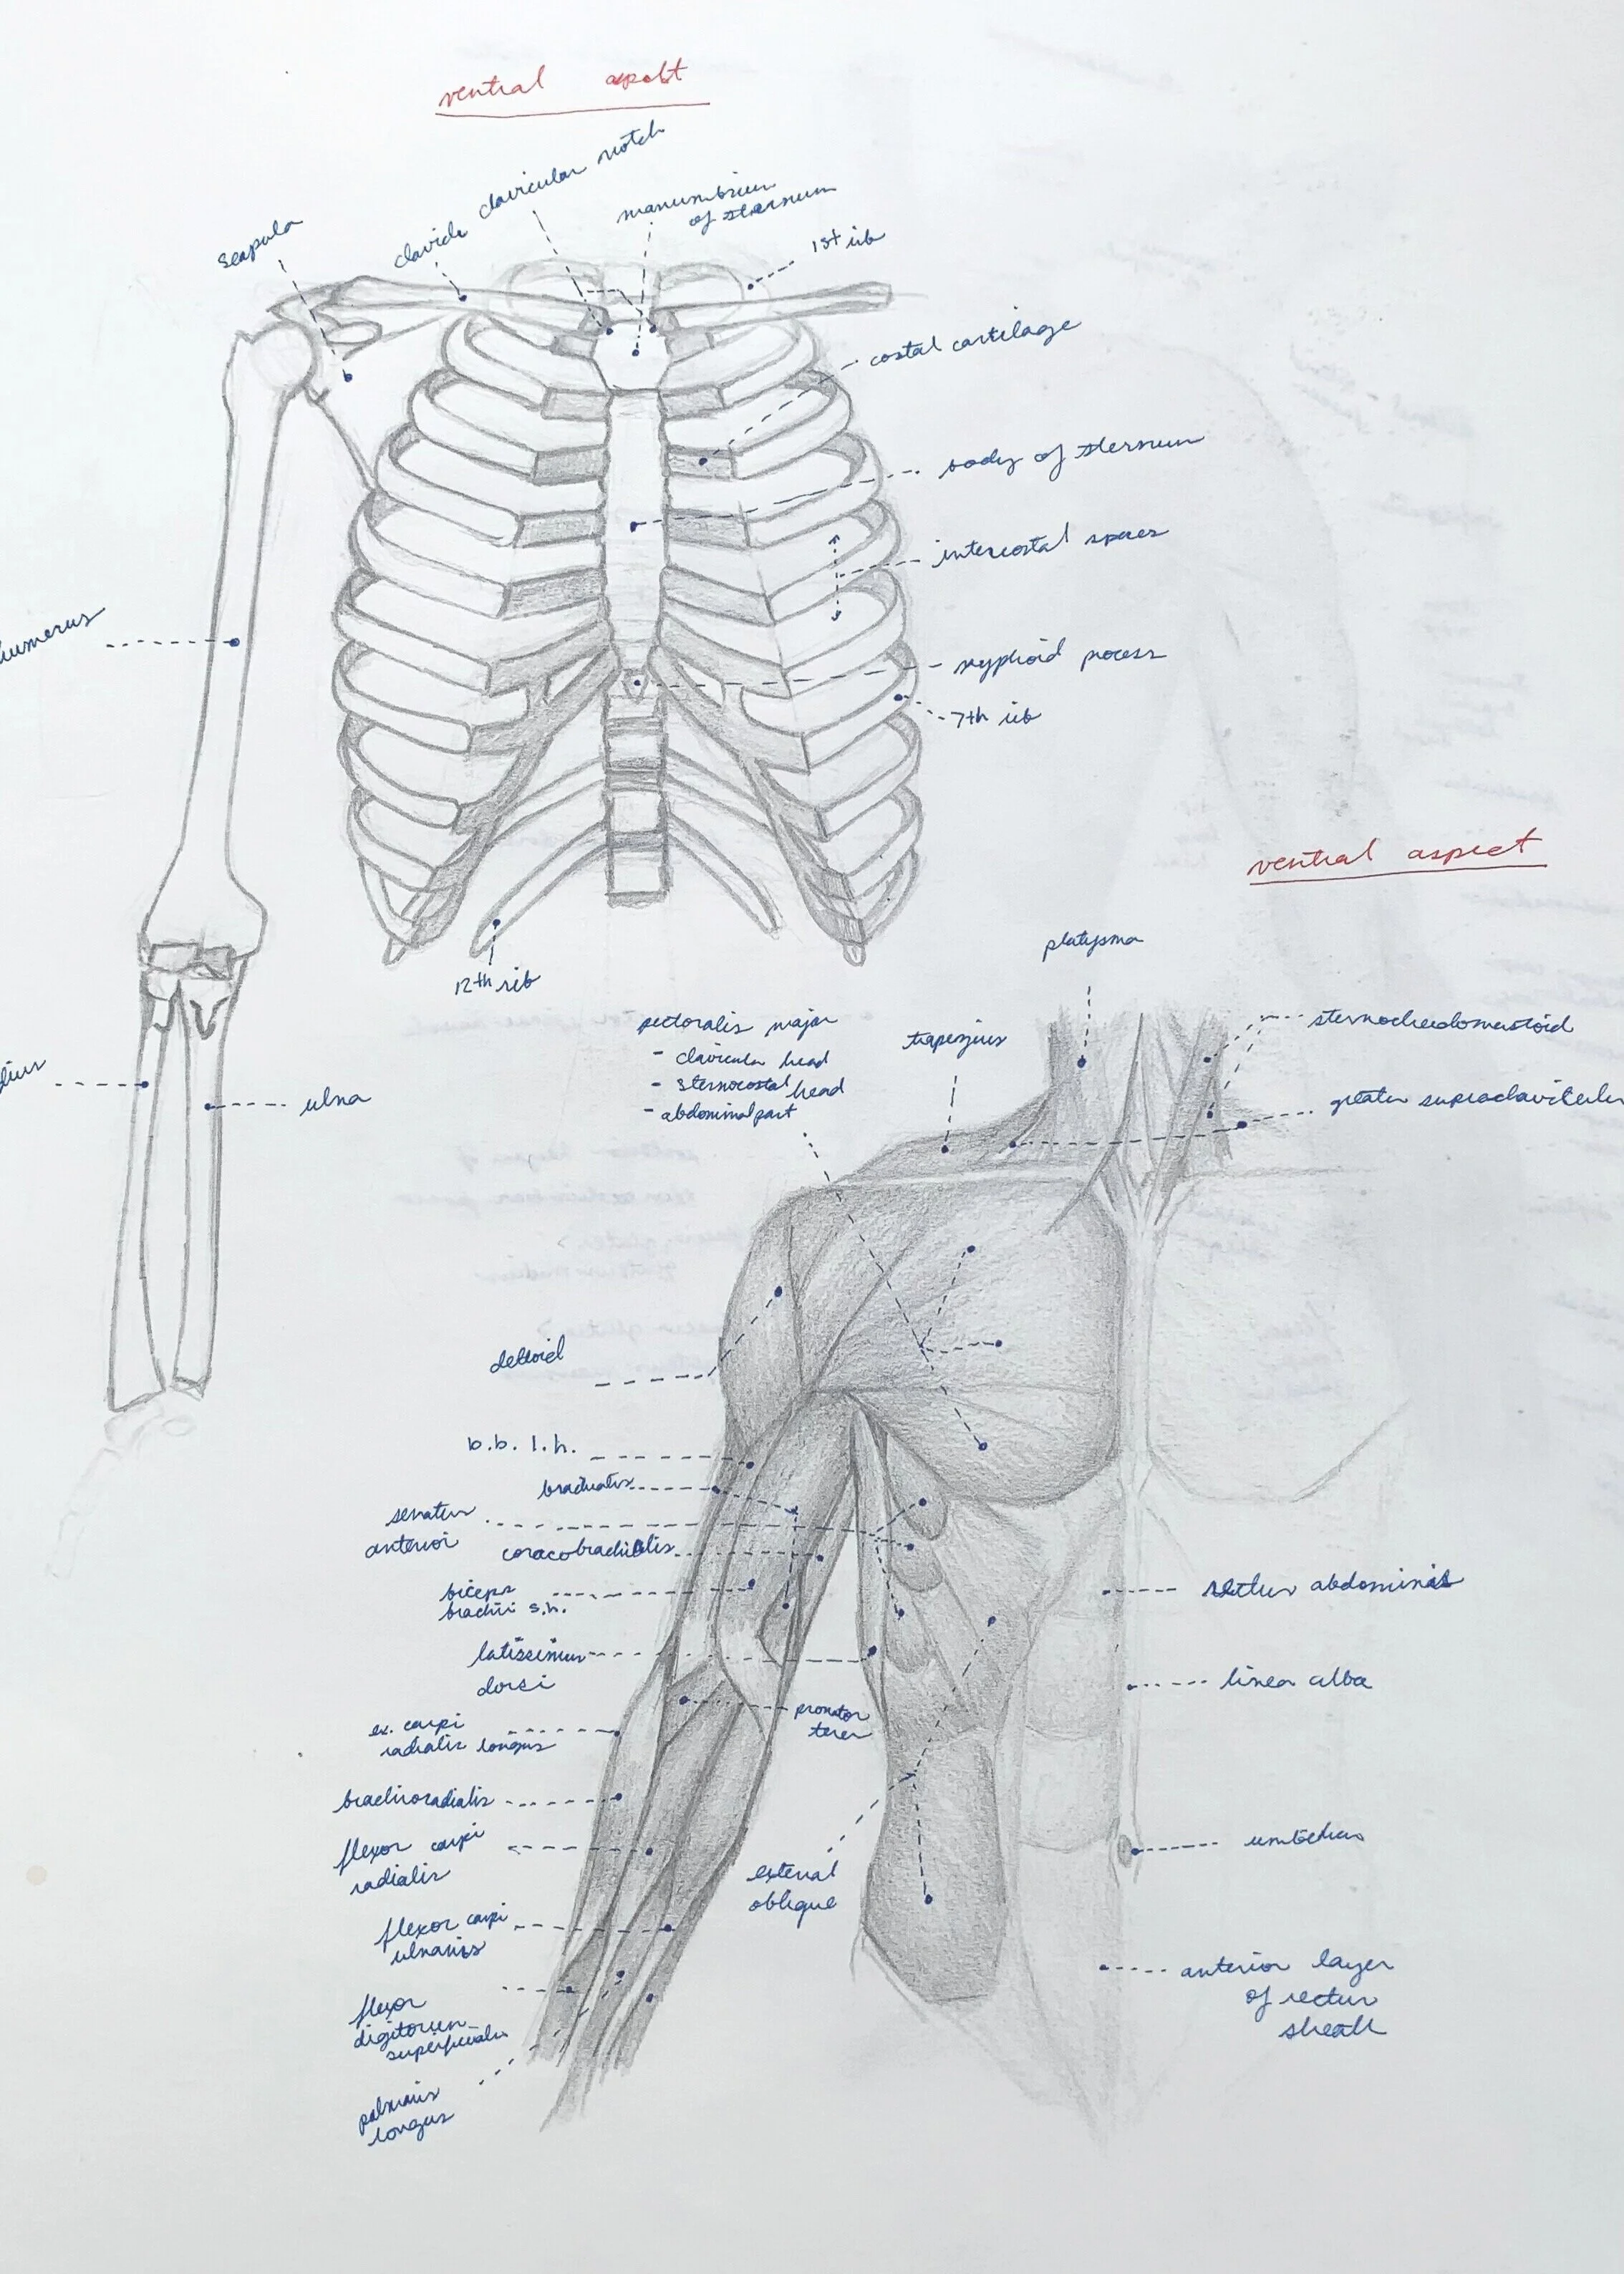 ventral aspect
clavicular notch
manumbrium
of sternum
scapula
clavicle
1st rib
costal cartilage
body of sternum
intercostal spaces
humerus
xyphoid process
7th rib
ventral aspect
12th rib
platysma
pectoralis major
- clavicular head
- sternocostal head
- abdominal part
trapezius
sternocleidomastoid
greater supraclavicular
ulna
deltoid
b.b. l.h.
brachialis
serratus
anterior
coracobrachialis
biceps
brachii s.h.
rectus abdominis
latissimus
dorsi
linea alba
pronator
teres
ex. carpi
radialis longus
brachioradialis
flexor carpi
radialis
external
oblique
umbilicus
flexor carpi
ulnaris
anterior layer
of rectus
sheath
flexor
digitorum
superficialis
palmaris
longus